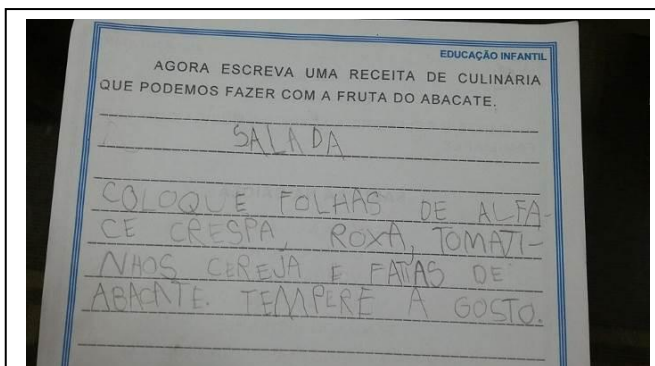 EDUCAÇÃO INFANTIL
AGORA ESCREVA UMA RECEITA DE CULINÁRIA
QUE PODEMOS FAZER COM A FRUTA DO ABACATE.
SALADA
COLOQUE FOLHAS DE ALFA-
CE CRESPA, ROXA, TOMATI-
NHOS CEREJA E FATIAS DE
ABACATE. TEMPERE A GOSTO.